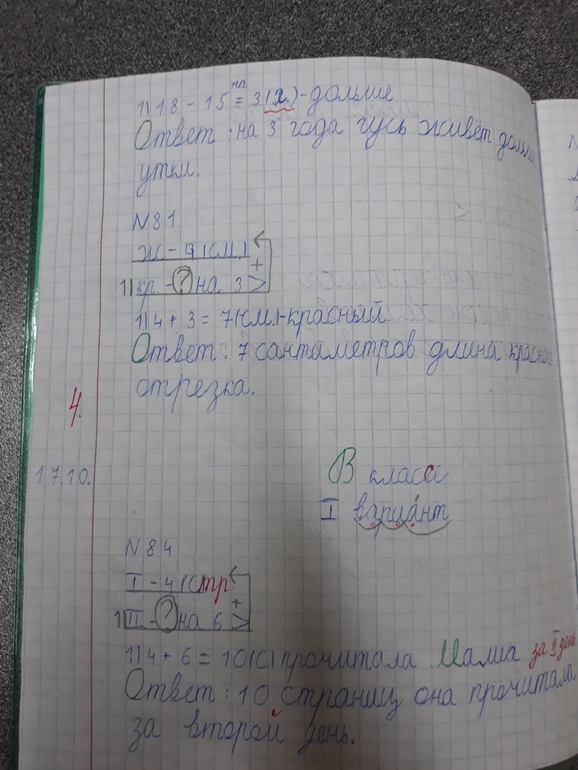 1) 18 - 15 = 3 (г.) - дольше
нп
Ответ: на 3 года гусь живёт доль
утки.
N 81
ж - 4 (см)
+
1) кр - ? на 3 >
1) 4 + 3 = 7 (см) - красный
Ответ: 7 сантиметров длина красно
отрезка.
4.
17.10.
В классе
I вариант
N 84
I - 4 (стр.
+
1) II - ? на 6 >
1) 4 + 6 = 10 (с) прочитала Маша за II день
Ответ: 10 страниц она прочитала
за второй день.